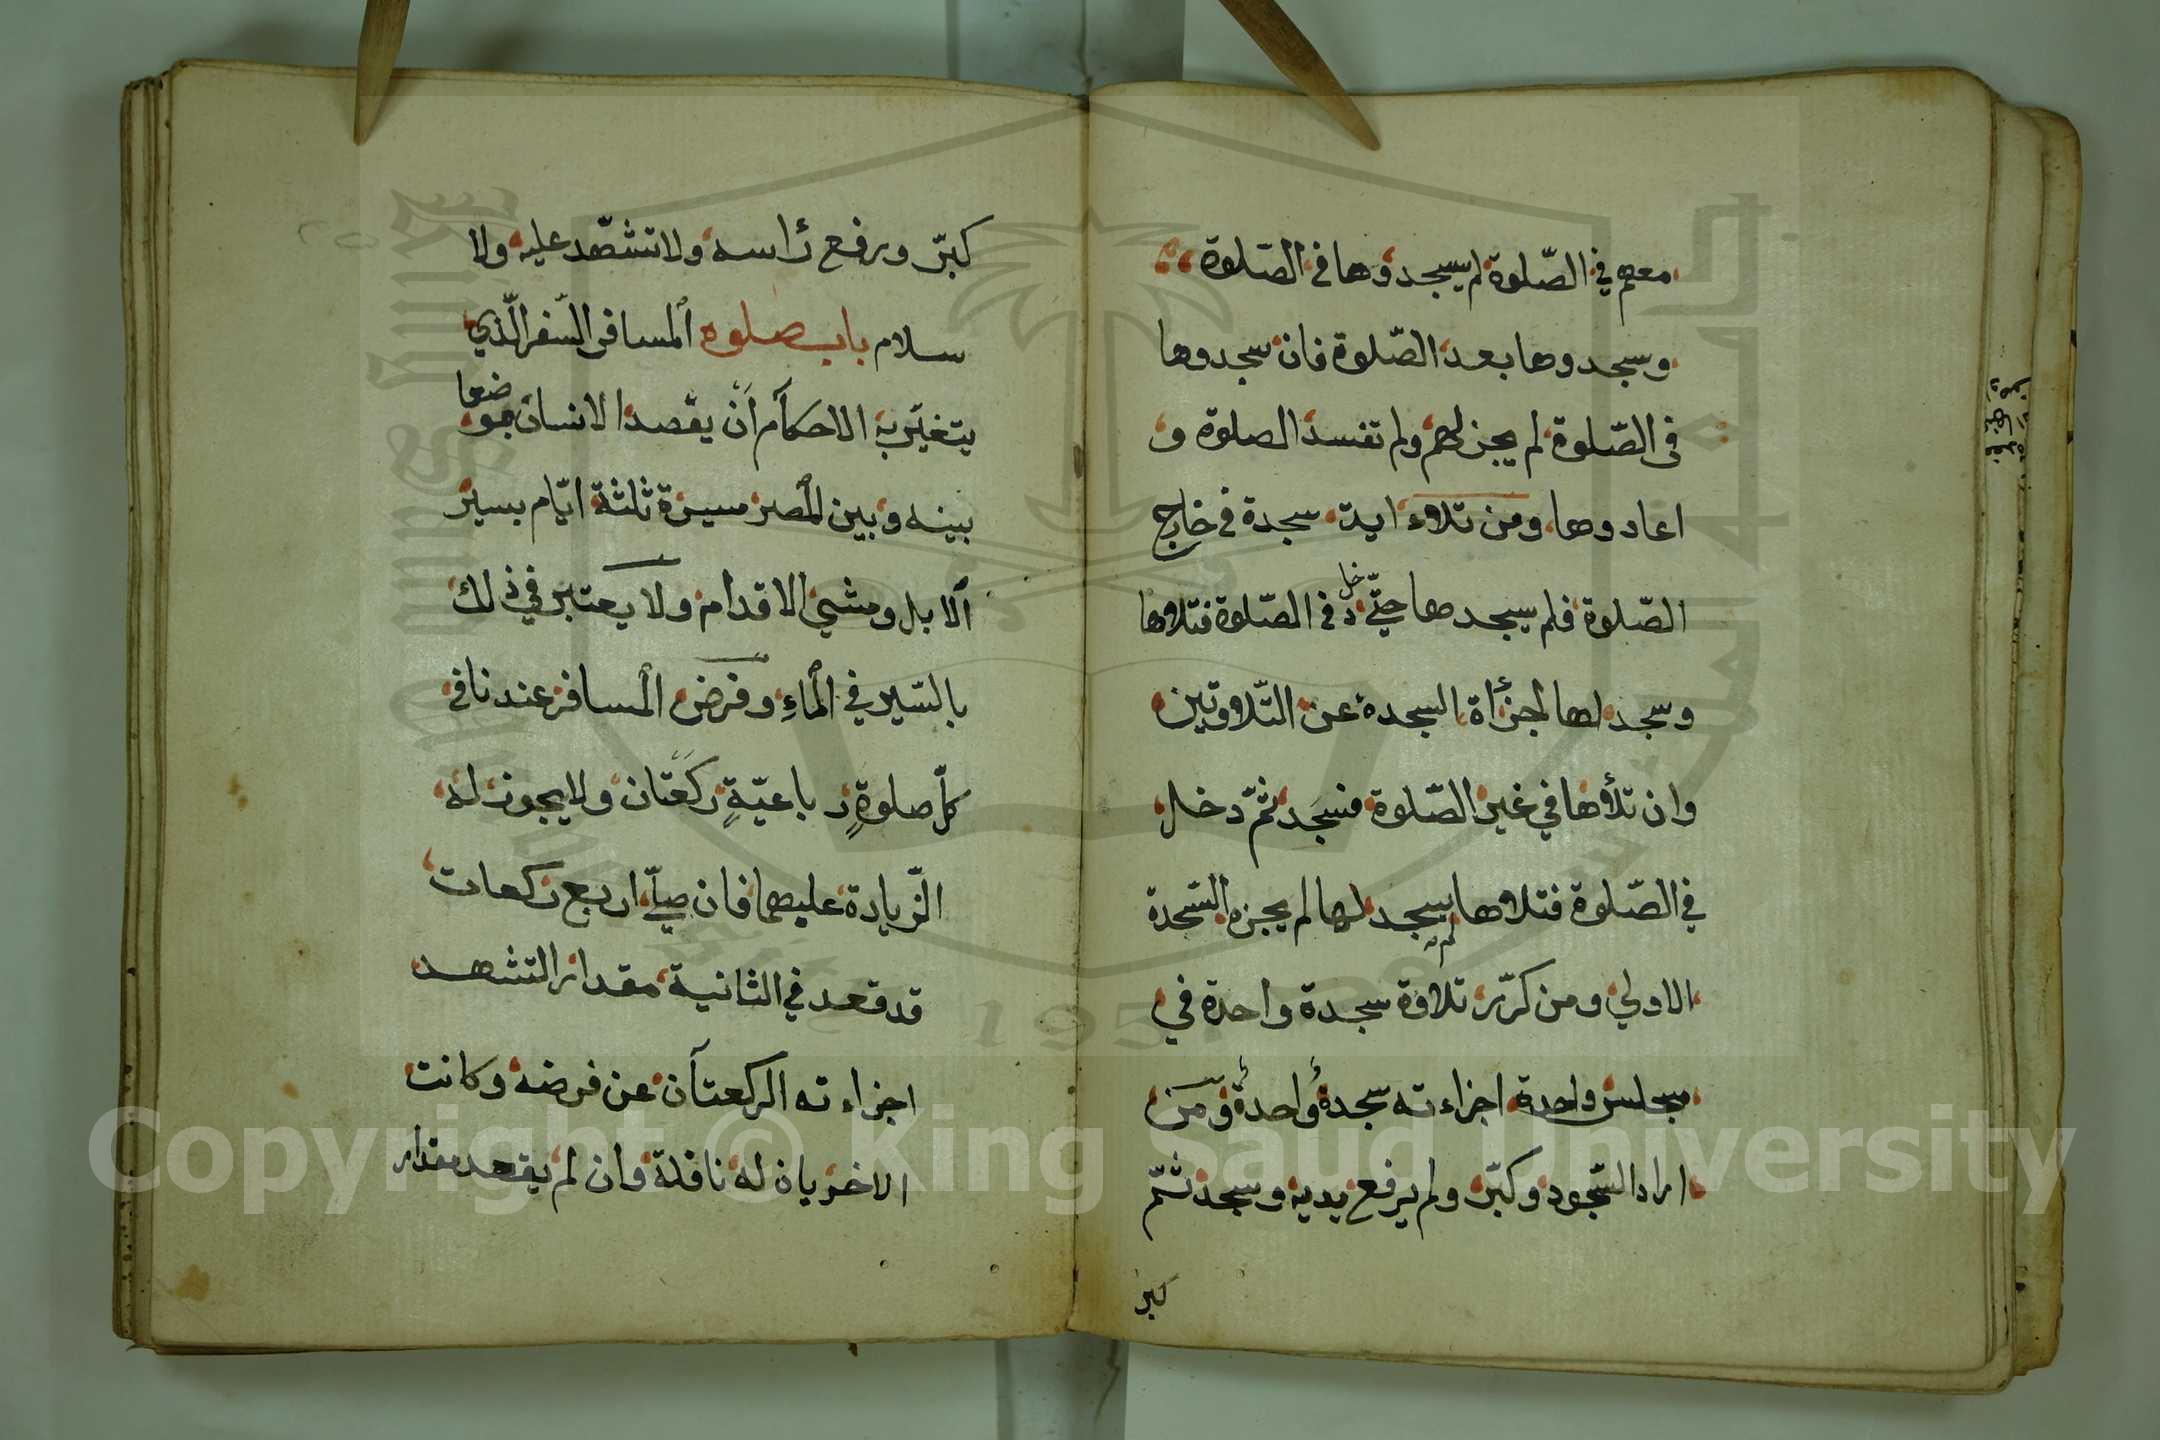 معهم في الصّلوة لم يسجدوها في الصّلوة
وسجدوها بعد الصّلوة فان سجدوها
في الصّلوة لم يجز لهم ولم تفسد الصلوة و
اعادوها ومن تلاء اية سجدة في خارج
الصّلوة فلم يسجدها حتّي دخل في الصّلوة فتلاوها
وسجد لها اجزأة السجدة عن التّلاوتين
وان تلأوها في غير الصّلوة فسجد ثمّ دخل
في الصّلوة فتلاوها لم يسجد لها لم يجزه السّجدة
الاولي ومن كرّر تلاوة سجدة واحدة في
مجلس واحدة اجزاءته سجدة واحدة ومن
اراد السّجود وكبّر ولم يرفع يديه وسجد ثمّ
كبر
كبّر ورفع رأسه ولا تشهّد عليه ولا
سلام باب صلوه المسافر السّفر الّذي
يتغيّر به الاحكام أن يقصد الانسان موضعا
بينه وبين المصر مسيرة ثلثة ايّام بسير
الابل ومشي الاقدام ولا يعتبر في ذلك
بالسّير في الماءِ وفرض المسافر عندنا في
كلّ صلوةٍ رباعيّةٍ ركعتان ولا يجوز له
الزّيادة عليهما فان صلّي اربع ركعات
قد قعد في الثانية مقدار التشهد
اجزاءته الركعتان عن فرضه وكانت
الاخريان له نافلة وان لم يقعد مقدار
Copyright © King Saud University
King Saud University
1957